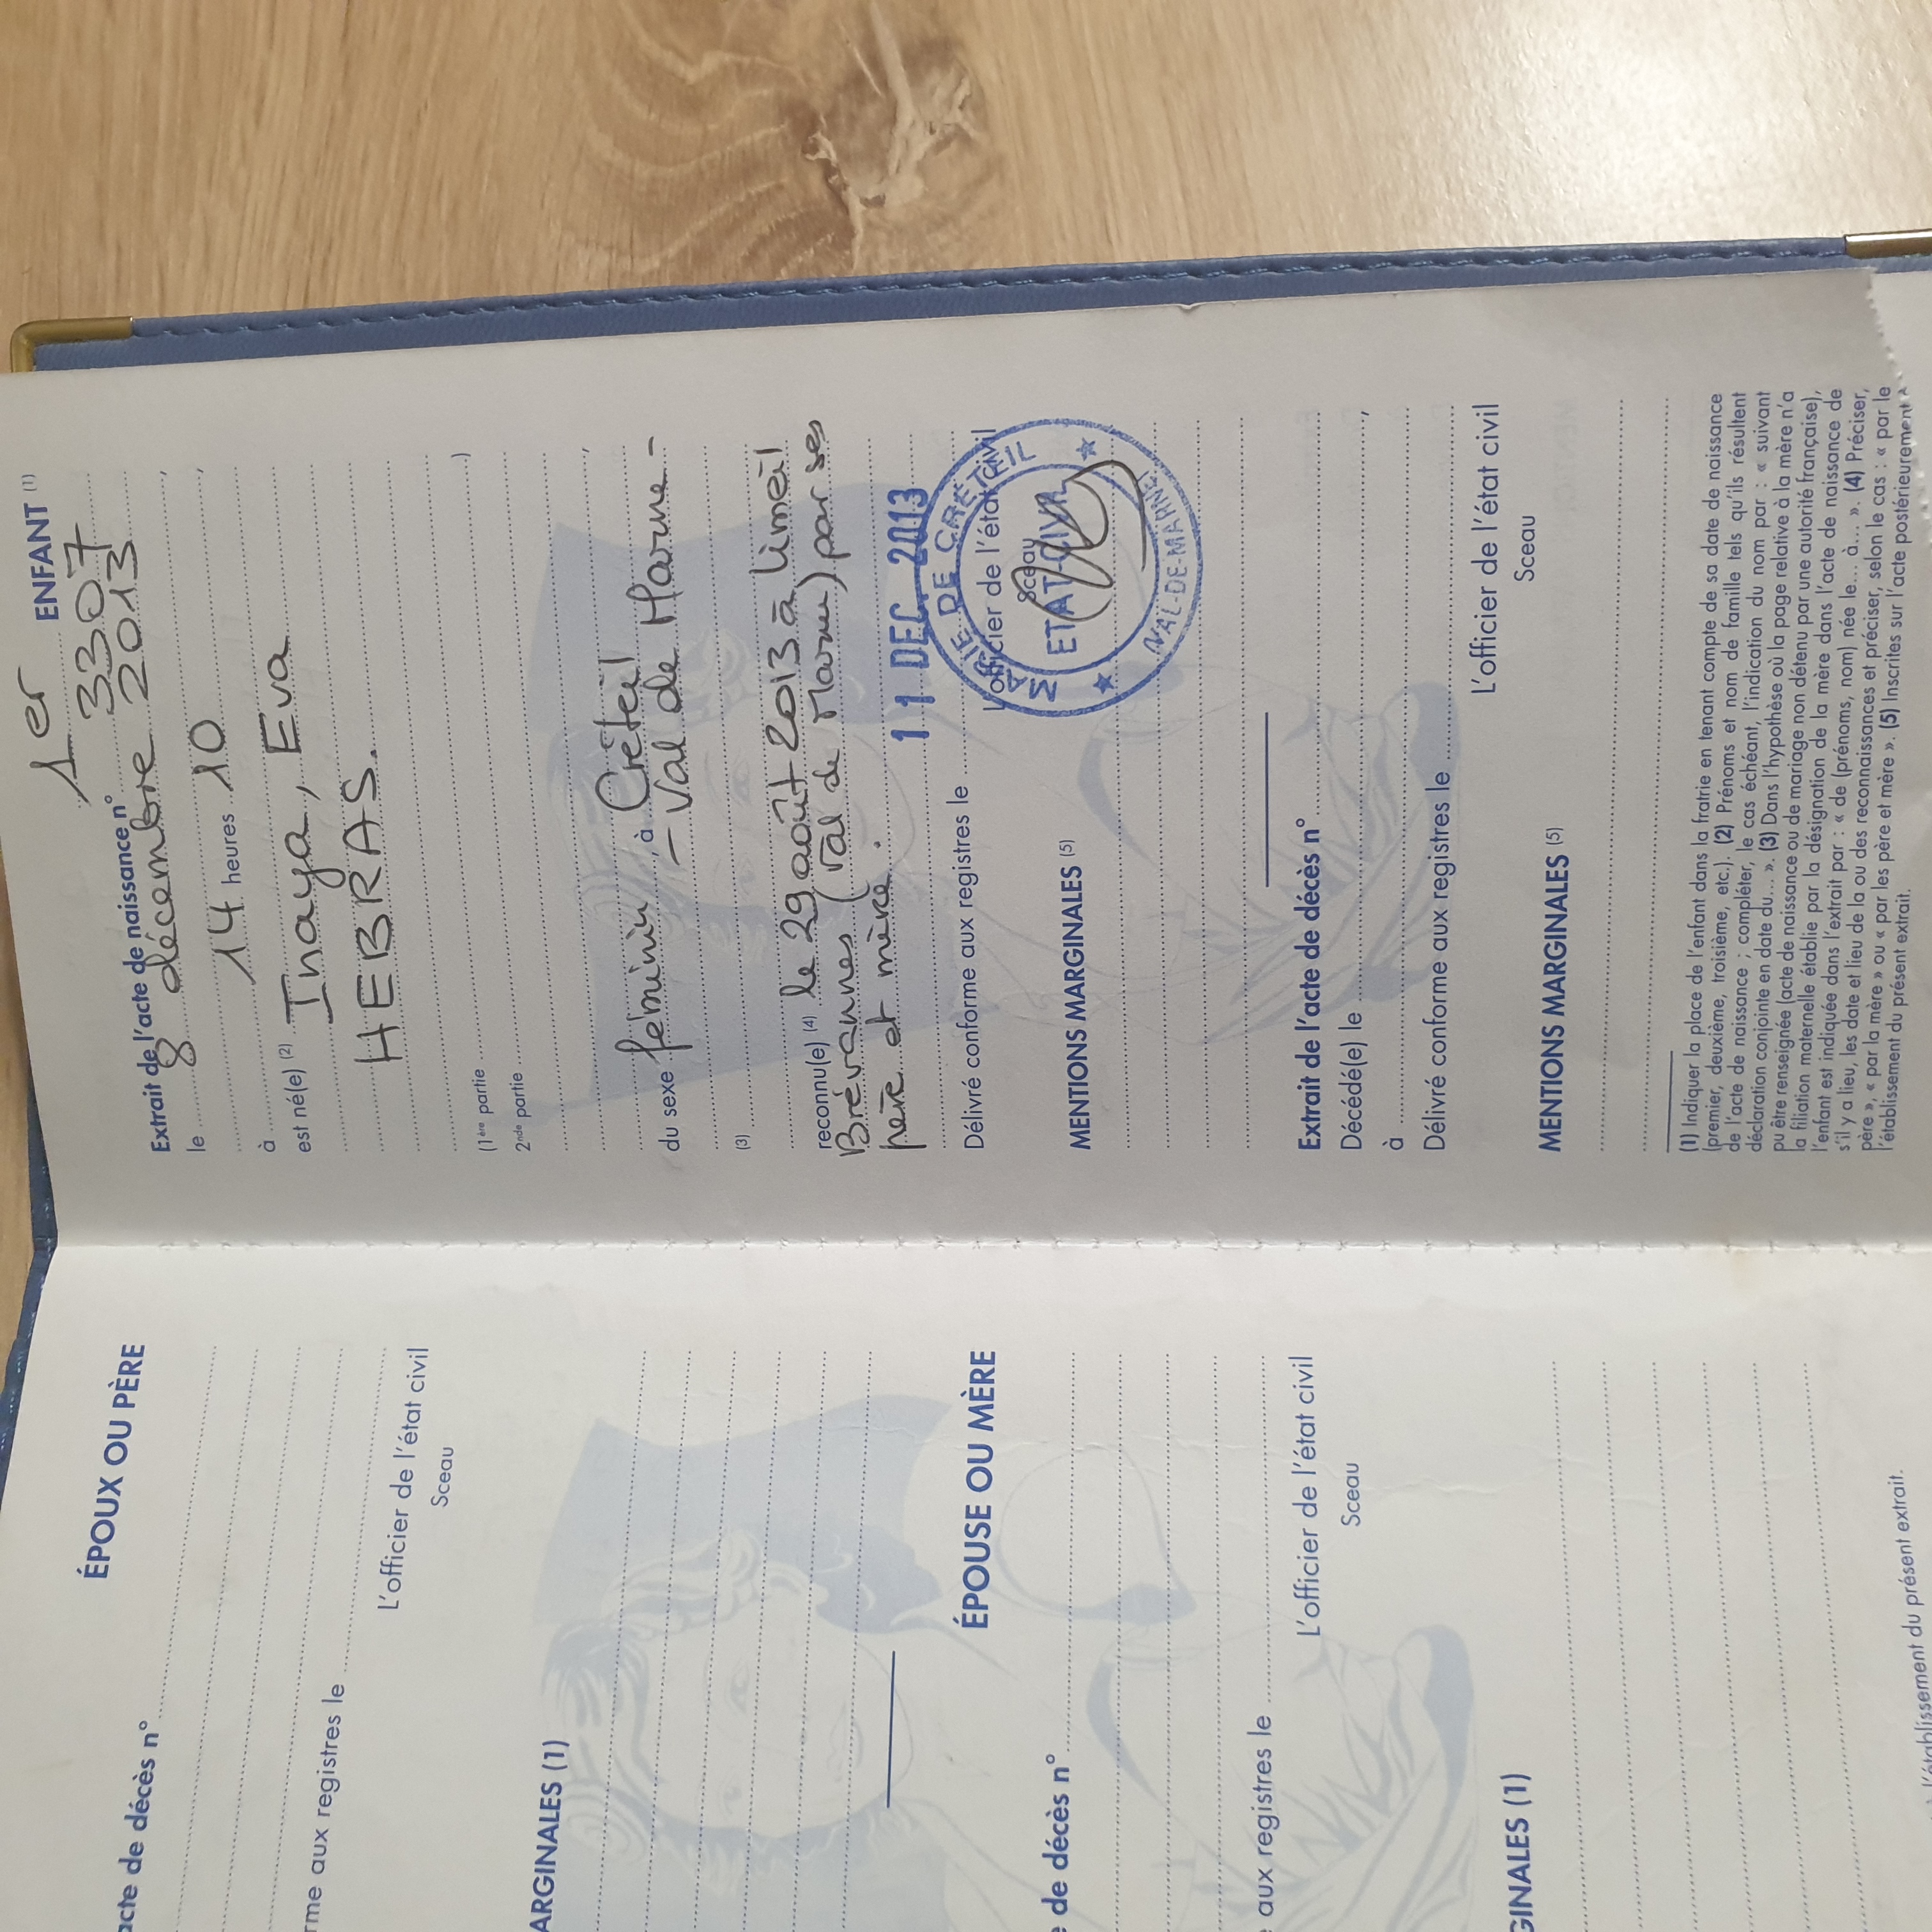 ÉPOUX OU PÈRE
acte de décès n°
rme aux registres le
L'officier de l'état civil
Sceau
ARGINALES (1)
ÉPOUSE OU MÈRE
de décès n°
aux registres le
L'officier de l'état civil
Sceau
GINALES (1)
l'établissement du présent extrait.
1er ENFANT (1)
Extrait de l'acte de naissance n° 3307
le 8 décembre 2013,
à 14 heures 10,
est né(e) (2) Inaya, Eva
HEBRAS.
(1ère partie )
2nde partie
,
du sexe féminin, à Créteil
- Val de Marne -
(3)
reconnu(e) (4) le 29 août 2013 à Limeil
Brévannes (Val de Marne) par ses
père et mère.
Délivré conforme aux registres le 11 DEC. 2013
L'officier de l'état civil
Sceau
MAIRIE DE CRÉTEIL
ETAT-CIVIL
(VAL-DE-MARNE)
MENTIONS MARGINALES (5)
Extrait de l'acte de décès n°
Décédé(e) le ,
à
Délivré conforme aux registres le
L'officier de l'état civil
Sceau
MENTIONS MARGINALES (5)
(1) Indiquer la place de l'enfant dans la fratrie en tenant compte de sa date de naissance
(premier, deuxième, troisième, etc.). (2) Prénoms et nom de famille tels qu'ils résultent
de l'acte de naissance ; compléter, le cas échéant, l'indication du nom par : « suivant
déclaration conjointe en date du... ». (3) Dans l'hypothèse où la page relative à la mère n'a
pu être renseignée (acte de naissance ou de mariage non détenu par une autorité française),
la filiation maternelle établie par la désignation de la mère dans l'acte de naissance de
l'enfant est indiquée dans l'extrait par : « de (prénoms, nom) née le... à... ». (4) Préciser,
s'il y a lieu, les date et lieu de la ou des reconnaissances et préciser, selon le cas : « par le
père », « par la mère » ou « par les père et mère » (5) Inscrites sur l'acte postérieurement à
l'établissement du présent extrait.